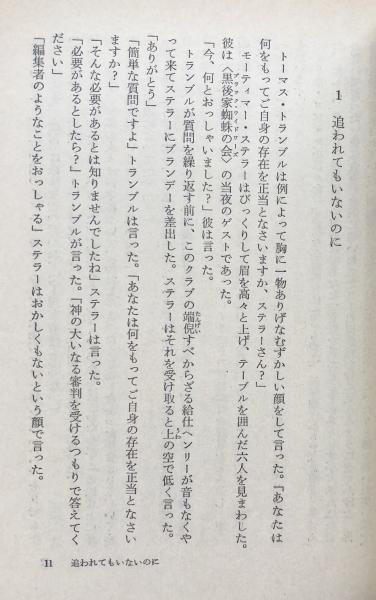 1 追われてもいないのに
トーマス・トランブルは例によって胸に一物ありげなむずかしい顔をして言った。「あなたは
何をもってご自身の存在を正当となさいますか、ステラーさん？」
モーティマー・ステラーはびっくりして眉を高々と上げ、テーブルを囲んだ六人を見まわした。
彼は〈黒後家蜘蛛の会〉の当夜のゲストであった。
ブラック・ウィドワーズ
「今、何とおっしゃいました？」彼は言った。
トランブルが質問を繰り返す前に、このクラブの端倪すべからざる給仕ヘンリーが音もなくや
たんげい
って来てステラーにブランデーを差出した。ステラーはそれを受け取ると上の空で低く言った。
うわ
「ありがとう」
「簡単な質問ですよ」トランブルは言った。「あなたは何をもってご自身の存在を正当となさい
ますか？」
「そんな必要があるとは知りませんでしたね」ステラーは言った。
「必要があるとしたら？」トランブルが言った。「神の大いなる審判を受けるつもりで答えてく
ださい」
「編集者のようなことをおっしゃる」ステラーはおかしくもないという顔で言った。
11 追われてもいないのに